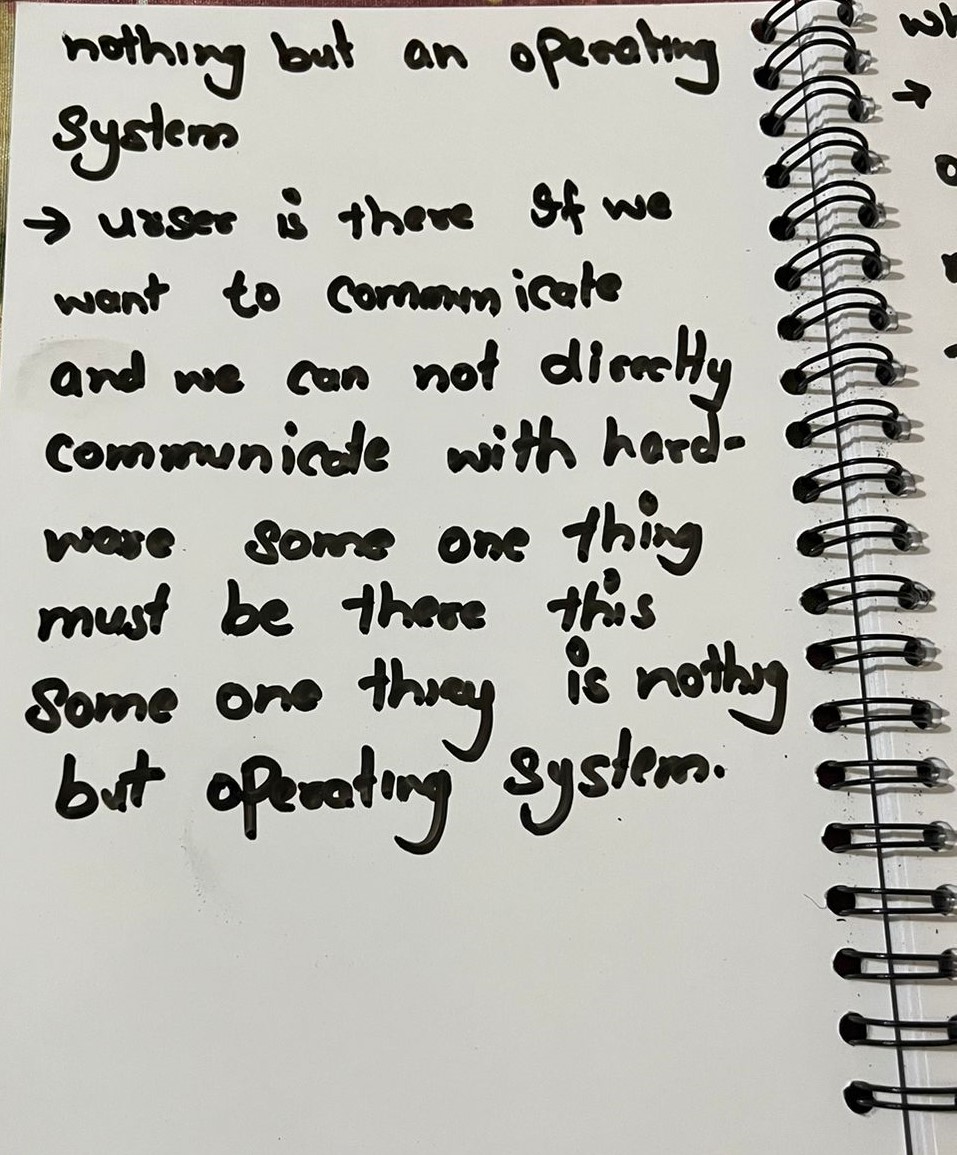 nothing but an operating
system
→ urser is there If we
want to communicate
and we can not directly
communicate with hard-
ware some one thing
must be there this
some one thing is nothing
but operating system.
wh
→